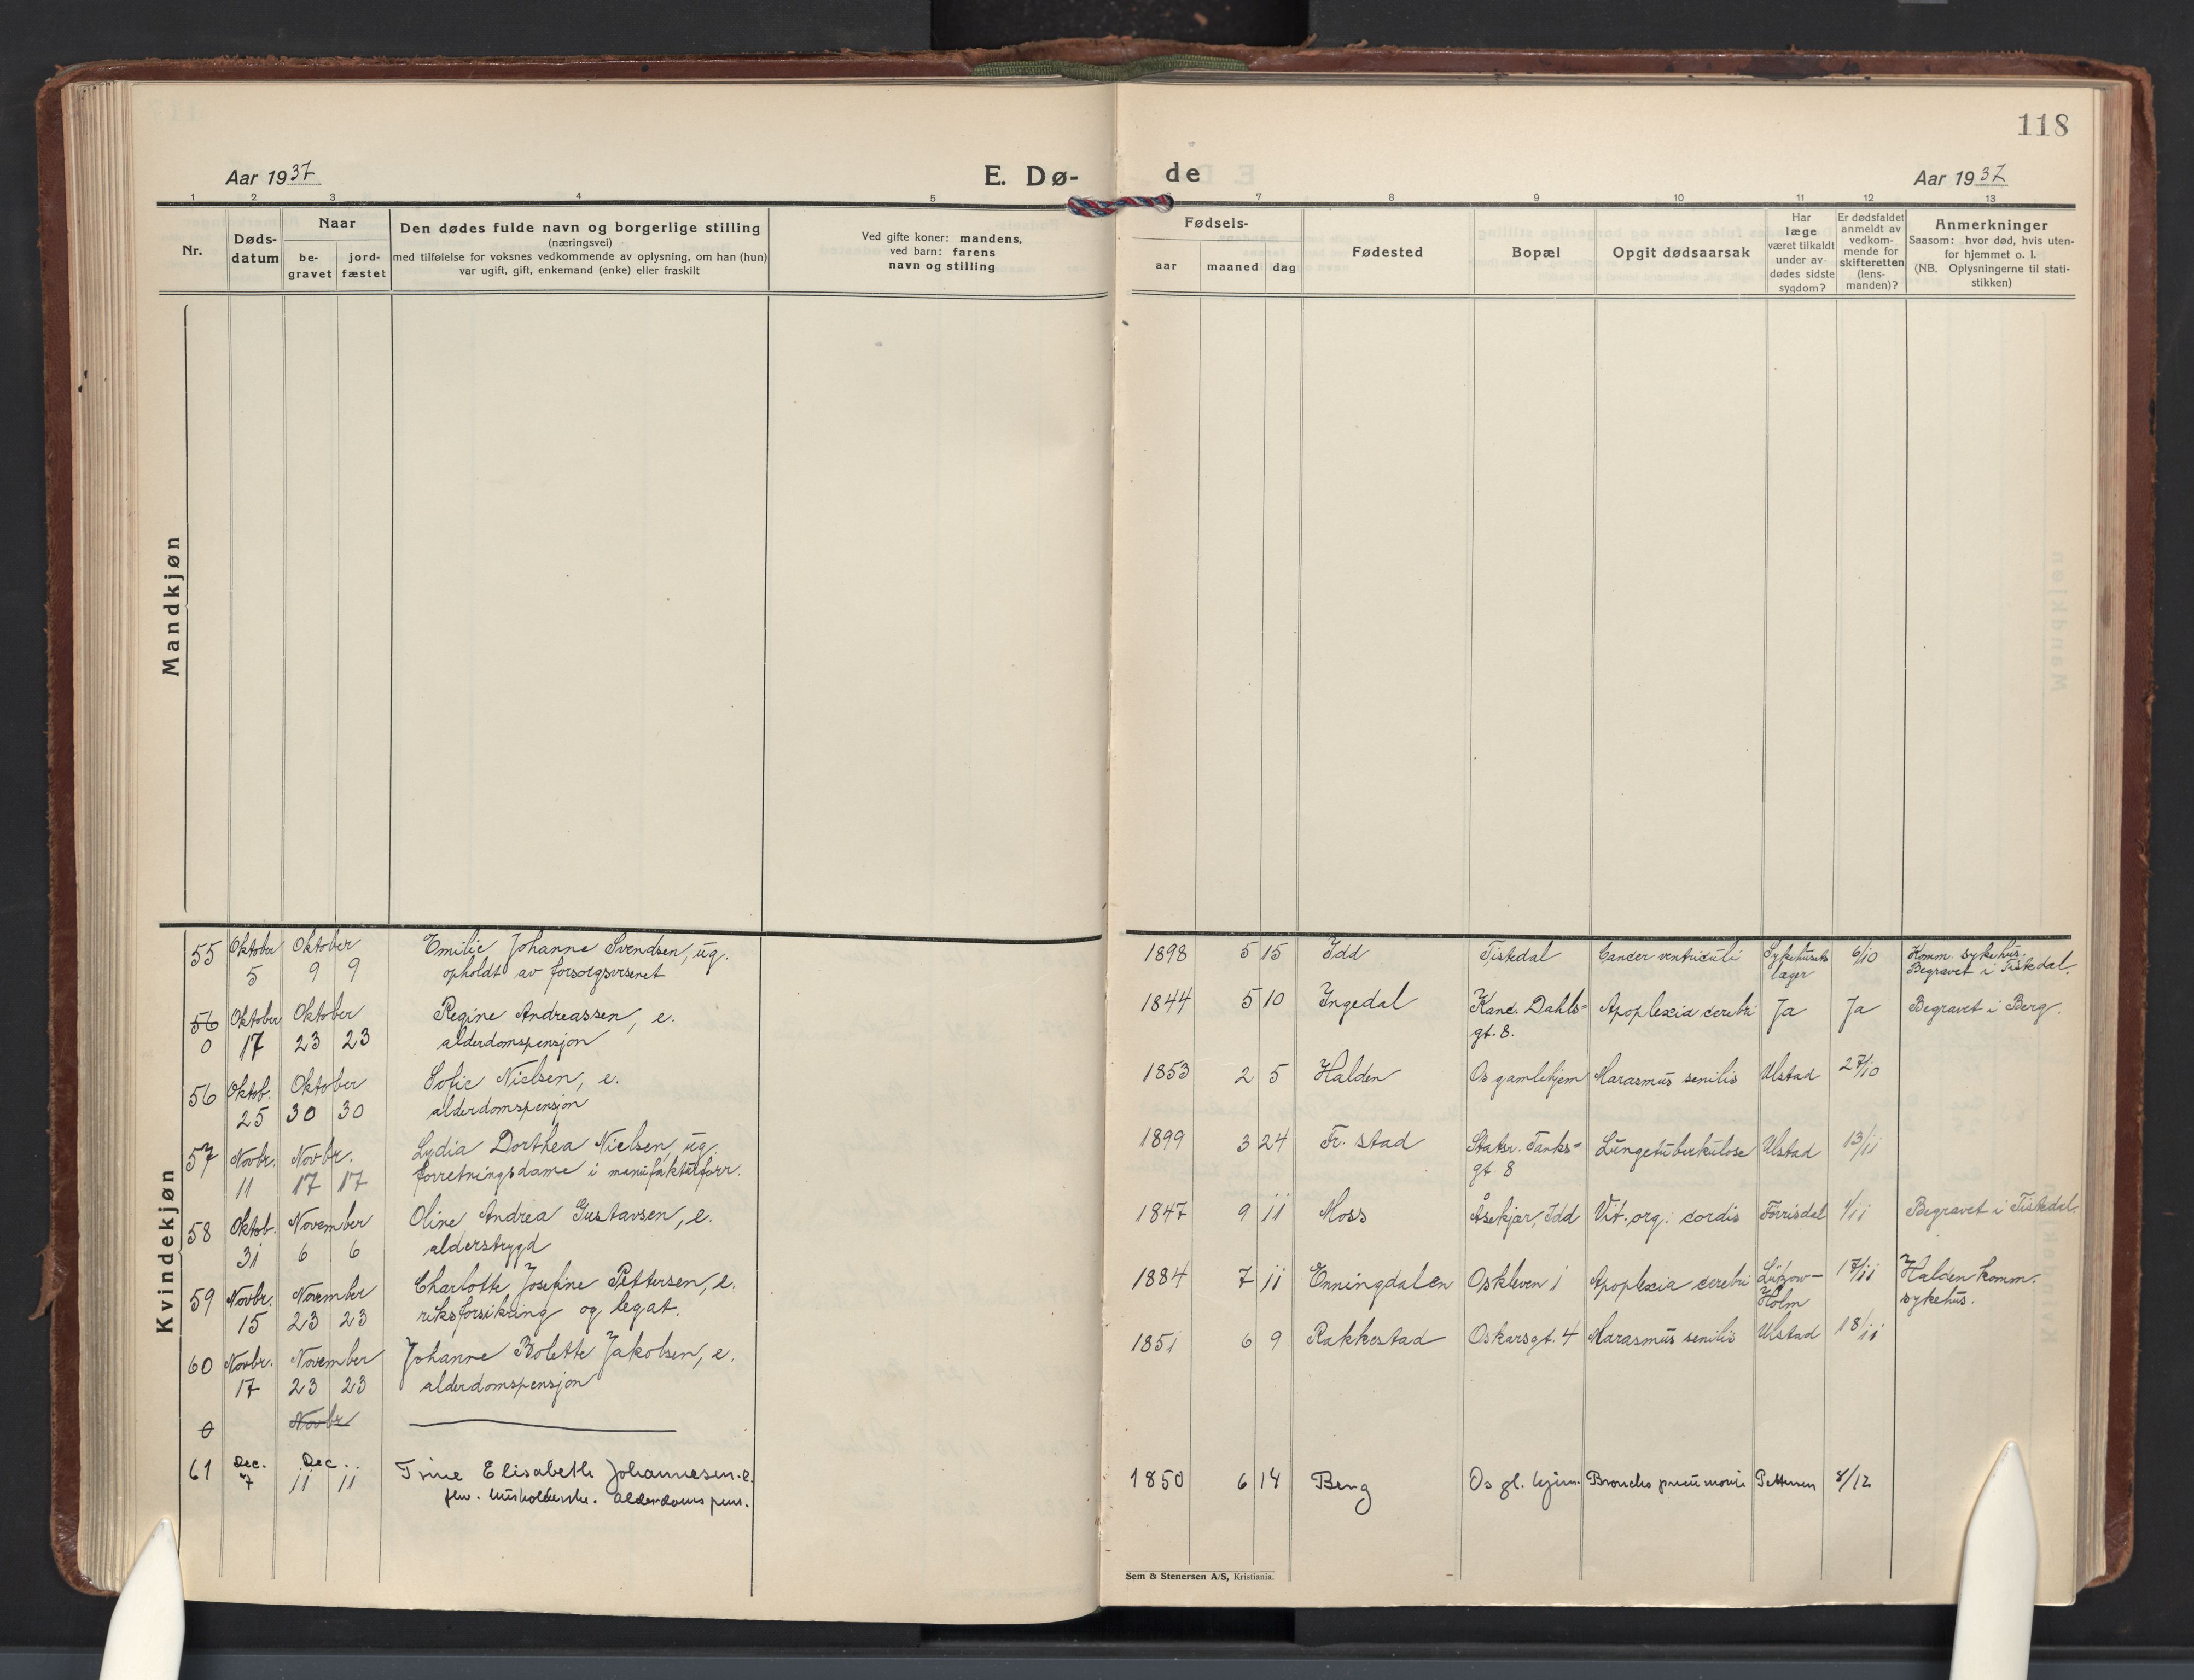 118
Aar 1937
E. Dø-
de
Aar 1937
1 2 3 4 5 6 7 8 9 10 11 12 13
Nr.
Døds-
datum
Naar
be-
gravet
jord-
fæstet
Den dødes fulde navn og borgerlige stilling
(næringsvei)
med tilføielse for voksnes vedkommende av oplysning, om han (hun)
var ugift, gift, enkemand (enke) eller fraskilt
Ved gifte koner: mandens,
ved barn: farens
navn og stilling
Fødsels-
aar maaned dag
Fødested
Bopæl
Opgit dødsaarsak
Har
læge
været tilkaldt
under av-
dødes sidste
sygdom?
Er dødsfaldet
anmeldt av
vedkom-
mende for
skifteretten
(lens-
manden)?
Anmerkninger
Saasom: hvor død, hvis uten-
for hjemmet o. l.
(NB. Oplysningerne til stati-
stikken)
Mandkjøn
Kvindekjøn
55 Oktober Oktober Emilie Johanne Svendsen, ug. 1898 5 15 Idd Tistedal Cancer ventriculi Sykehusets 6/10 Komm. sykehus.
5 9 9 opholdt av forsorgsvesenet læger Begravet i Tistedal.
56 Oktober Oktober Regine Andreassen, e. 1844 5 10 Ingedal Kanc. Dahls= Apoplexia cerebri Ja Ja Begravet i Berg.
0 17 23 23 alderdomspensjon gt. 8.
56 Oktob. Oktober Sofie Nielsen, e. 1853 2 5 Halden Os gamlehjem Marasmus senilis Ulstad 27/10
25 30 30 alderdomspensjon
57 Novbr. Novbr. Lydia Dorthea Nielsen, ug. 1899 3 24 Fr. stad Statsr. Tanks= Lungetuberkulose Ulstad 13/11
11 17 17 forretningsdame i manufakturforr. gt 8
58 Oktob. November Oline Andrea Gustavsen, e. 1847 9 11 Moss Åsekjær, Idd Vit. org. cordis Förrisdal 1/11 Begravet i Tistedal.
31 6 6 alderstrygd
59 Novbr. November Charlotte Josefine Pettersen, e. 1884 7 11 Enningdalen Oskleven 1 Apoplexia cerebri Lützow- 17/11 Halden komm.
15 23 23 riksforsikring og legat. Holm sykehus.
60 Novbr. November Johanne Bolette Jakobsen, e. 1851 6 9 Rakkestad Oskarsgt. 4 Marasmus senilis Ulstad 18/11
17 23 23 alderdomspensjon
0 Novbr
61 Dec. Dec. Trine Elisabeth Johannesen. e. 1850 6 14 Berg Os gl. hjem Broncho pneumoni Pettersen 8/12
7 11 11 fhv. husholderske. alderdomspens.
Sem & Stenersen A/S, Kristiania.